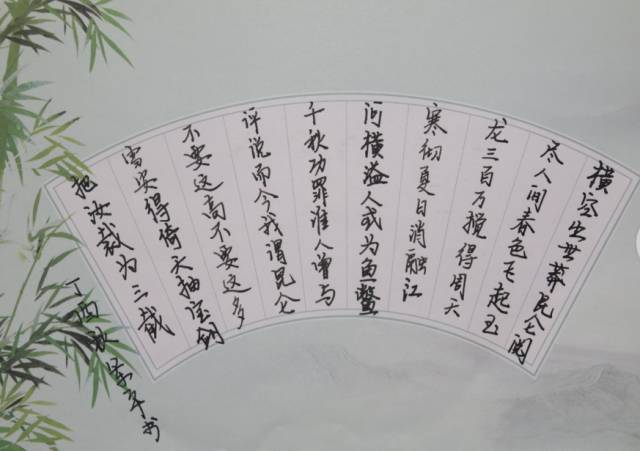 横空出世莽昆仑阅
尽人间春色飞起玉
龙三百万搅得周天
寒彻夏日消融江
河横溢人或为鱼鳖
千秋功罪谁人曾与
评说而今我谓昆仑
不要这高不要这多
雪安得倚天抽宝剑
把汝裁为三截
丁酉秋平书